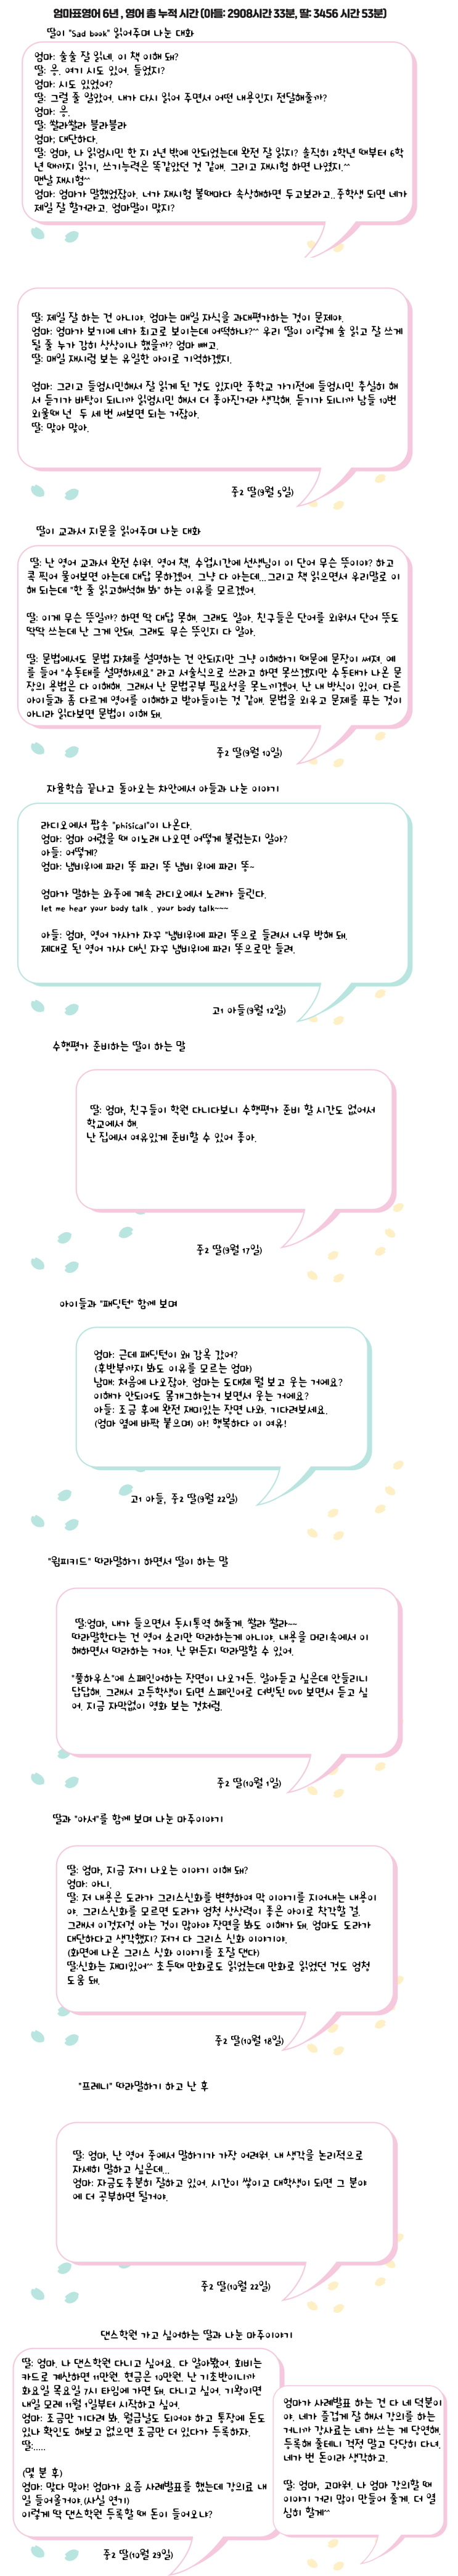 엄마표영어 6년 , 영어 총 누적 시간 (아들: 2908시간 33분, 딸: 3456 시간 53분)
딸이 "Sad book" 읽어주며 나눈 대화
엄마: 술술 잘 읽네. 이 책 이해 돼?
딸: 응. 여기 시도 있어. 들었지?
엄마: 시도 있었어?
딸: 그럴 줄 알았어. 내가 다시 읽어 주면서 어떤 내용인지 전달해줄까?
엄마: 응.
딸: 쏼라쏼라 블라블라
엄마: 대단하다.
딸: 엄마, 나 읽엄시민 한 지 2년 밖에 안되었는데 완전 잘 읽지? 솔직히 2학년 때부터 6학
년 때까지 읽기, 쓰기능력은 똑같았던 것 같애. 그리고 재시험 하면 나였지.^^
맨날 재시험^^
엄마: 엄마가 말했었잖아. 너가 재시험 볼때마다 속상해하면 두고보라고..중학생 되면 네가
제일 잘 할거라고. 엄마말이 맞지?
딸: 제일 잘 하는 건 아니야. 엄마는 매일 자식을 과대평가하는 것이 문제야.
엄마: 엄마가 보기에 네가 최고로 보이는데 어떡하냐?^^ 우리 딸이 이렇게 술 읽고 잘 쓰게
될 줄 누가 감히 상상이나 했을까? 엄마 빼고.
딸: 매일 재시험 보는 유일한 아이로 기억하겠지.
엄마: 그리고 들엄시민해서 잘 읽게 된 것도 있지만 중학교 가기전에 들엄시민 충실히 해
서 듣기가 바탕이 되니까 읽엄시민 해서 더 좋아진거라 생각해. 듣기가 되니까 남들 10번
외울때 넌 두 세 번 써보면 되는 거잖아.
딸: 맞아 맞아.
중2 딸(9월 5일)
딸이 교과서 지문을 읽어주며 나눈 대화
딸: 난 영어 교과서 완전 쉬워. 영어 책, 수업시간에 선생님이 이 단어 무슨 뜻이야? 하고
콕 찍어 물어보면 아는데 대답 못하겠어. 그냥 다 아는데...그리고 책 읽으면서 우리말로 이
해 되는데 "한 줄 읽고해석해 봐" 하는 이유를 모르겠어.
딸: 이게 무슨 뜻일까? 하면 딱 대답 못해. 그래도 알아. 친구들은 단어를 외워서 단어 뜻도
딱딱 쓰는데 난 그게 안돼. 그래도 무슨 뜻인지 다 알아.
딸: 문법에서도 문법 자체를 설명하는 건 안되지만 그냥 이해하기 때문에 문장이 써져. 예
를 들어 "수동태를 설명하세요" 라고 서술식으로 쓰라고 하면 못쓰겠지만 수동태가 나온 문
장의 용법은 다 이해해. 그래서 난 문법공부 필요성을 못느끼겠어. 난 내 방식이 있어. 다른
아이들과 좀 다르게 영어를 이해하고 받아들이는 것 같애. 문법을 외우고 문제를 푸는 것이
아니라 읽다보면 문법이 이해 돼.
중2 딸(9월 10일)
자율학습 끝나고 돌아오는 차안에서 아들과 나눈 이야기
라디오에서 팝송 "phisical"이 나온다.
엄마: 엄마 어렸을 때 이노래 나오면 어떻게 불렀는지 알아?
아들: 어떻게?
엄마: 냄비위에 파리 똥 파리 똥 냄비 위에 파리 똥~
엄마가 말하는 와중에 계속 라디오에서 노래가 들린다.
let me hear your body talk , your body talk~~~
아들: 엄마, 영어 가사가 자꾸 "냄비위에 파리 똥으로 들려서 너무 방해 돼.
제대로 된 영어 가사 대신 자꾸 냄비위에 파리 똥으로만 들려.
고1 아들(9월 12일)
수행평가 준비하는 딸이 하는 말
딸: 엄마, 친구들이 학원 다니다보니 수행평가 준비 할 시간도 없어서
학교에서 해.
난 집에서 여유있게 준비할 수 있어 좋아.
중2 딸(9월 17일)
아이들과 "패딩턴" 함께 보며
엄마: 근데 패딩턴이 왜 감옥 갔어?
(후반부까지 봐도 이유를 모르는 엄마)
남매: 처음에 나오잖아. 엄마는 도대체 뭘 보고 웃는 거에요?
이해가 안되어도 몸개그하는거 보면서 웃는 거에요?
아들: 조금 후에 완전 재미있는 장면 나와. 기다려보세요.
(엄마 옆에 바짝 붙으며) 아! 행복하다 이 여유!
고1 아들, 중2 딸(9월 22일)
"윔피키드" 따라말하기 하면서 딸이 하는 말
딸:엄마, 내가 들으면서 동시통역 해줄게. 쏼라 쏼라~~
따라말한다는 건 영어 소리만 따라하는게 아니야. 내용을 머리속에서 이
해하면서 따라하는 거야. 난 뭐든지 따라말할 수 있어.
"풀하우스"에 스페인어하는 장면이 나오거든. 알아듣고 싶은데 안들리니
답답해. 그래서 고등학생이 되면 스페인어로 더빙된 DVD 보면서 듣고 싶
어. 지금 자막없이 영화 보는 것처럼.
중2 딸(10월 1일)
딸과 "아서"를 함께 보며 나눈 마주이야기
딸: 엄마, 지금 저기 나오는 이야기 이해 돼?
엄마: 아니.
딸: 저 내용은 도라가 그리스신화를 변형하여 막 이야기를 지어내는 내용이
야. 그리스신화를 모르면 도라가 엄청 상상력이 좋은 아이로 착각할 걸.
그래서 이것저것 아는 것이 많아야 장면을 봐도 이해가 돼. 엄마도 도라가
대단하다고 생각했지? 저거 다 그리스 신화 이야기야.
(화면에 나온 그리스 신화 이야기를 조잘 댄다)
딸:신화는 재미있어^^ 초등때 만화로도 읽었는데 만화로 읽었던 것도 엄청
도움 돼.
중2 딸(10월 18일)
"프레니" 따라말하기 하고 난 후
딸: 엄마, 난 영어 중에서 말하기가 가장 어려워. 내 생각을 논리적으로
자세히 말하고 싶은데...
엄마: 지금도충분히 잘하고 있어. 시간이 쌓이고 대학생이 되면 그 분야
에 더 공부하면 될거야.
중2 딸(10월 22일)
댄스학원 가고 싶어하는 딸과 나눈 마주이야기
딸: 엄마. 나 댄스학원 다니고 싶어요. 다 알아봤어. 회비는
카드로 계산하면 11만원. 현금은 10만원. 난 기초반이니까
화요일 목요일 7시 타임에 가면 돼. 다니고 싶어. 기왕이면
내일 모레 11월 1일부터 시작하고 싶어.
엄마: 조금만 기다려 봐. 월급날도 되어야 하고 통장에 돈도
있나 확인도 해보고 없으면 조금만 더 있다가 등록하자.
딸:.....
(몇 분 후)
엄마: 맞다 맞아! 엄마가 요즘 사례발표를 했는데 강의료 내
일 들어올거야.(사실 연기)
이렇게 딱 댄스학원 등록할 때 돈이 들어오냐?
엄마가 사례발표 하는 건 다 네 덕분이
야. 네가 즐겁게 잘 해서 강의를 하는
거니까 강사료는 네가 쓰는 게 당연해.
등록해 줄테니 걱정 말고 당당히 다녀.
네가 번 돈이라 생각하고.
딸: 엄마, 고마워. 나 엄마 강의할 때
이야기 거리 많이 만들어 줄게. 더 열
심히 할게^^
중2 딸(10월 29일)